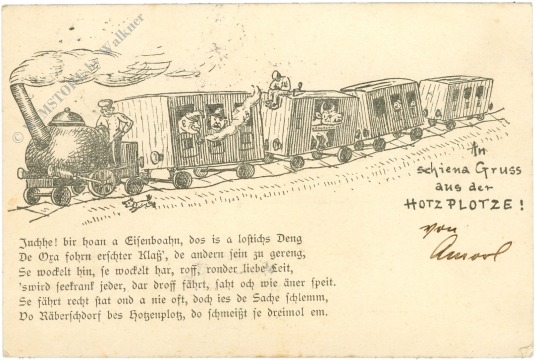 © AMSTORE Walkner
An
schiena Gruss
aus der
HOTZPLOTZE!
von
Juchhe! bir hoan a Eisenboahn, dos is a lostichs Deng
De Oxa fohrn erschter Klaß', de andern sein zu gereng,
Se wockelt hin, se wockelt har, roff, ronder liebe Leit,
'swird seekrank jeder, dar droff fährt, saht och wie äner speit.
Se fährt recht stat ond a nie oft, doch ies de Sache schlemm,
Vo Räberschdorf bes Hotzenplotz, do schmeißt se dreimol em.